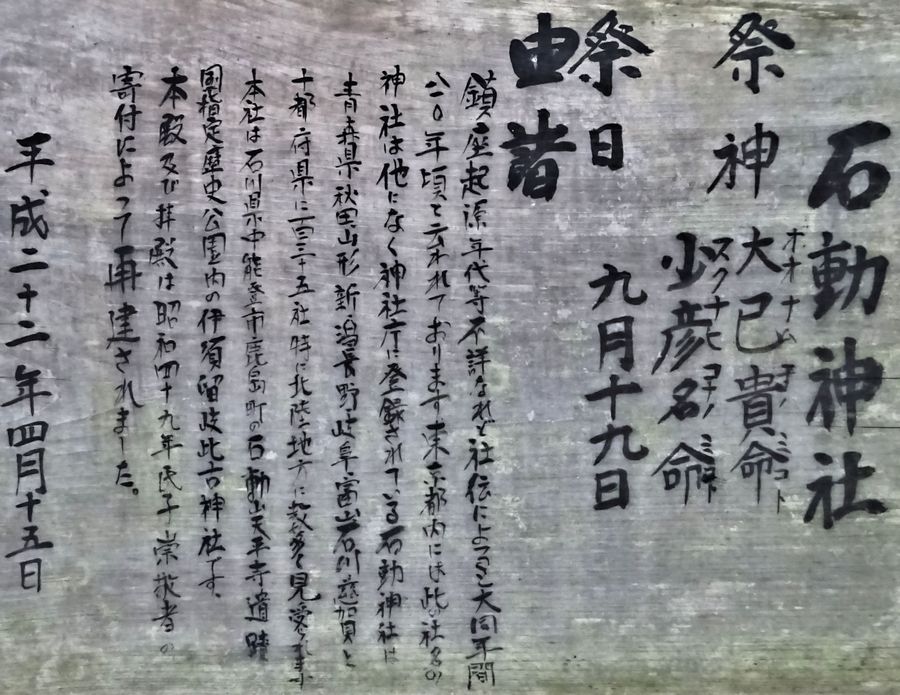 石動神社
祭神 大己貴命
オオナムチノミコト
少彦名命
スクナヒコナノミコト
祭日 九月十九日
由諸
鎮座起源年代等不詳なれど社伝によると大同年間
八一〇年頃と云われております東京都内には此の社名の
神社は他になく神社庁に登録されている石動神社は
青森県秋田山形新潟長野岐阜富山石川滋賀と
十都府県に百三十五社特に北陸地方に数多く見受られます
本社は石川県中能登市鹿島町の石動山天平寺遺蹟
国指定歴史公園内の伊須留岐比古神社です。
本殿及び拝殿は昭和四十九年氏子崇敬者の
寄付によって再建されました。
平成二十二年四月十五日